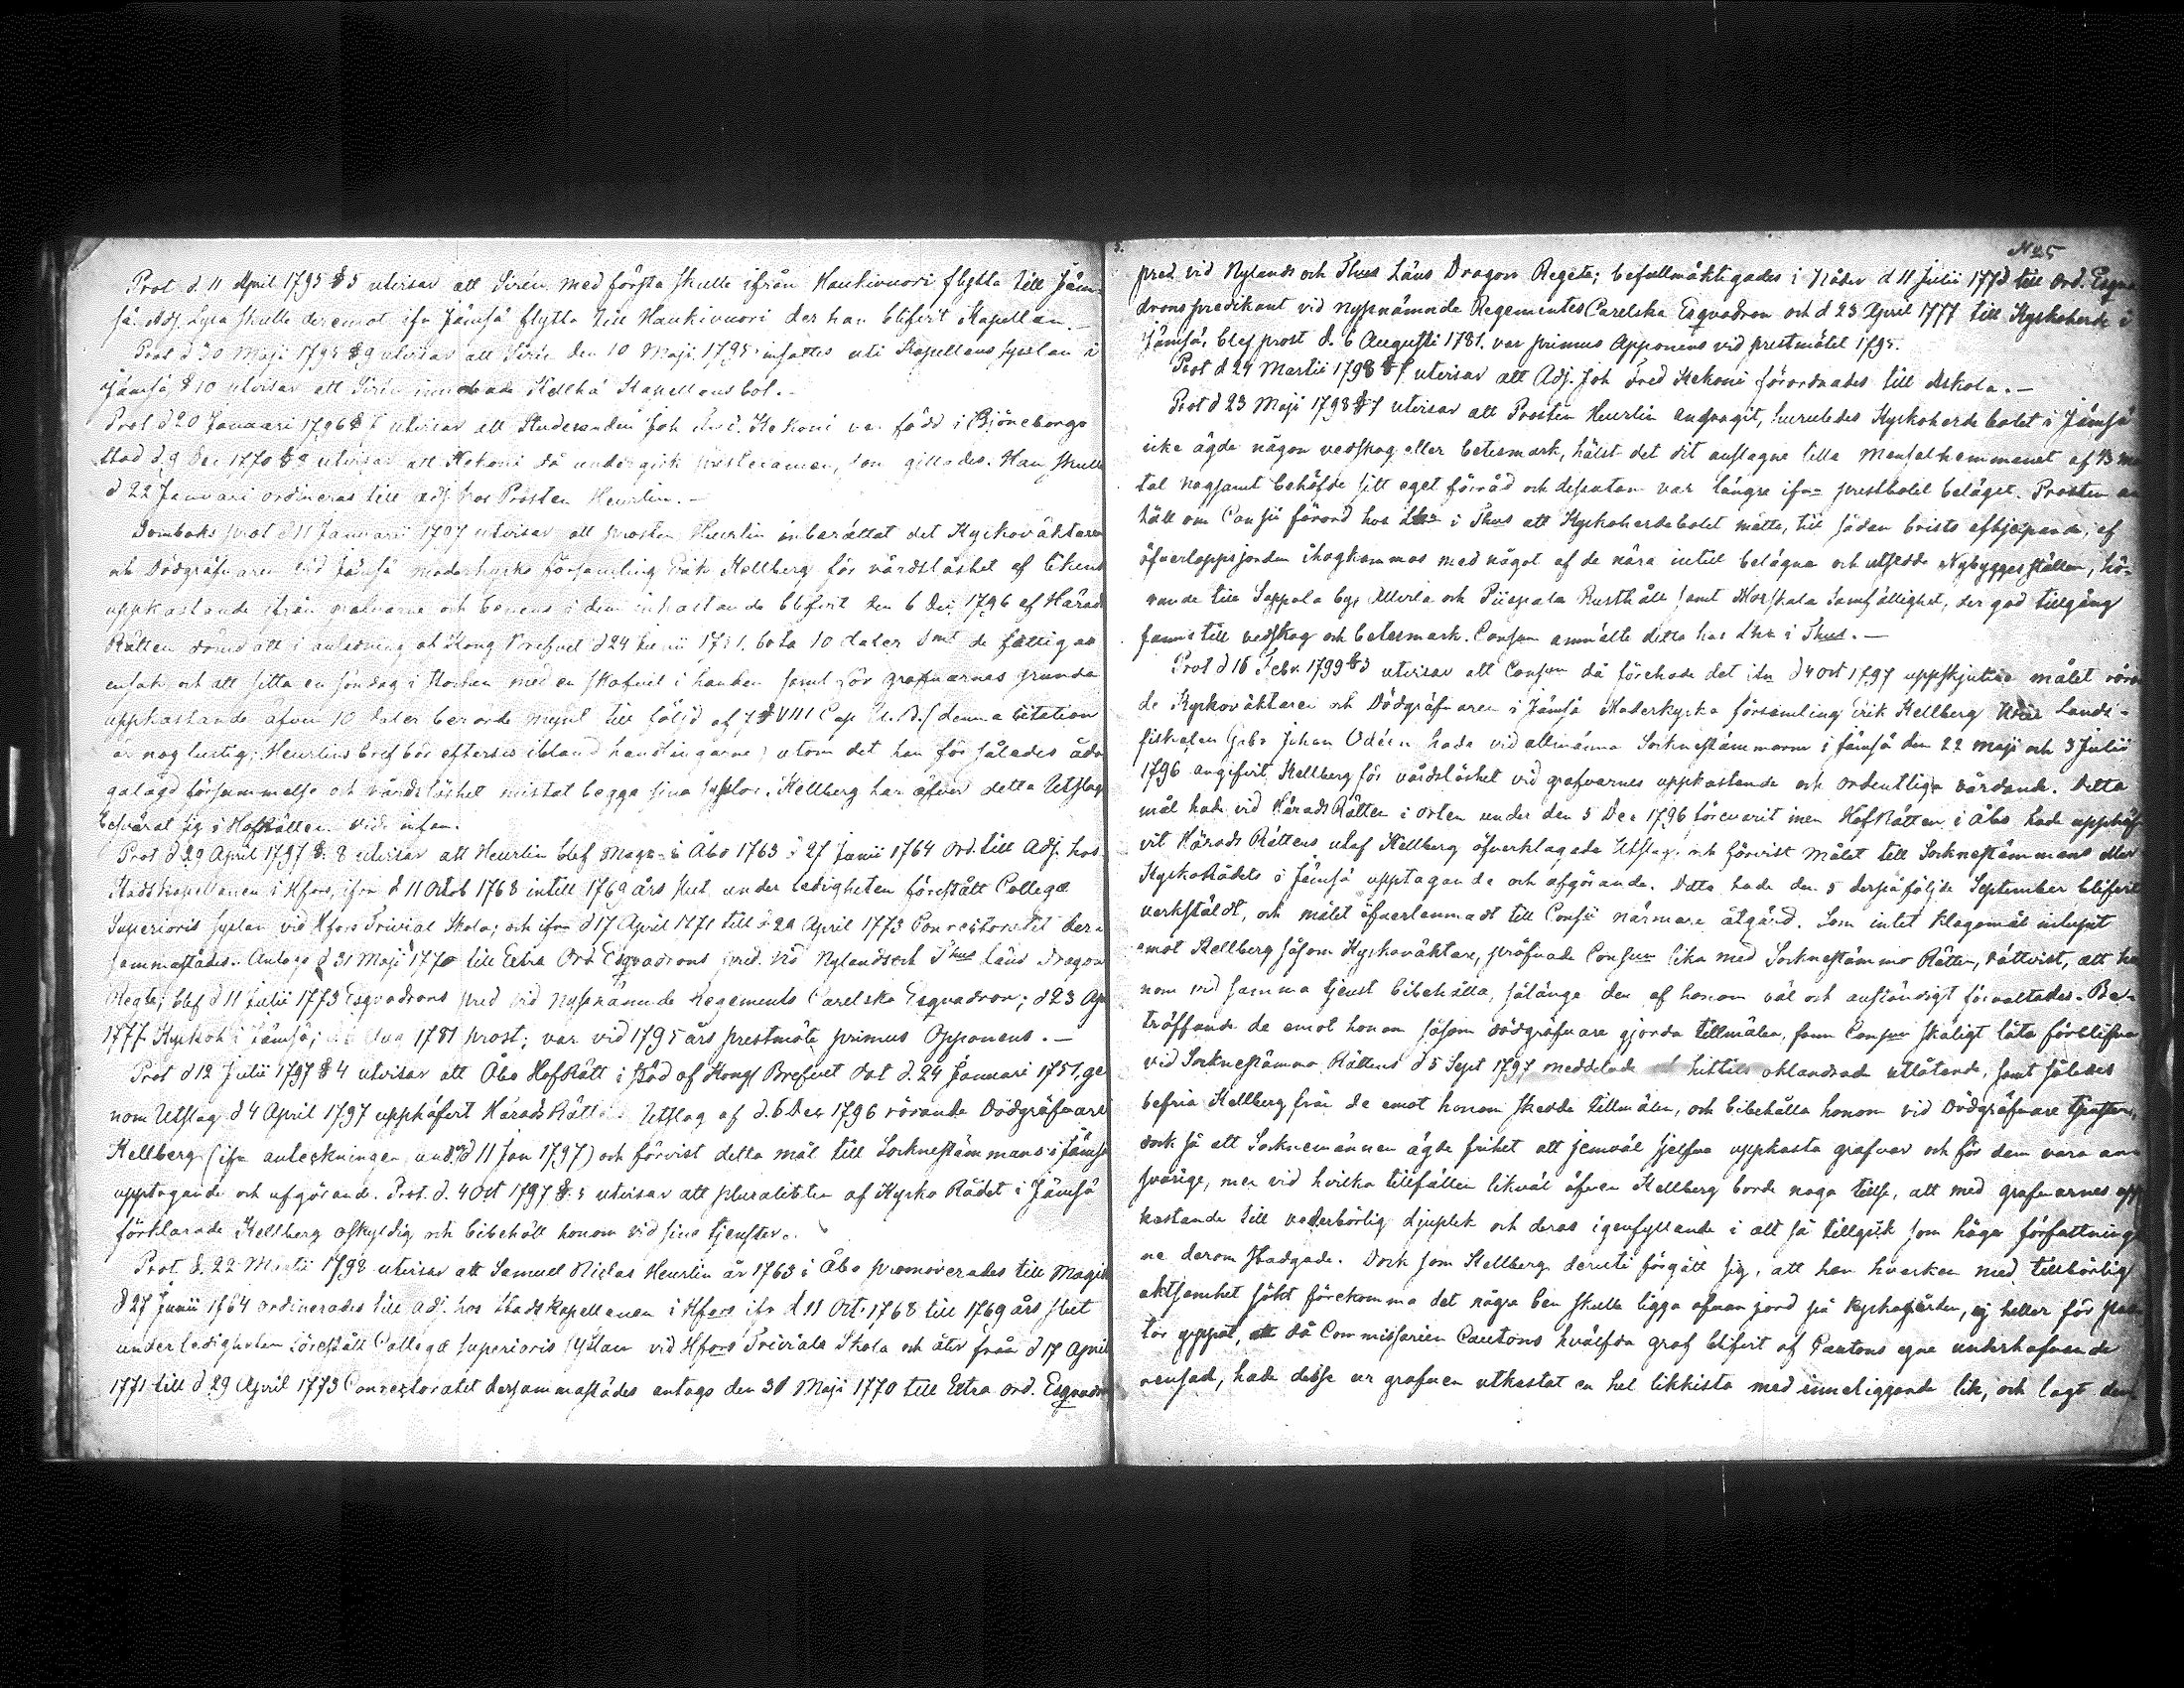 Prot d. 11 April 1795 § 5 utvisar att Sirén med första skulle ifrån Haukivuori flytta till Jäm-
sä. Adj. Lyra skulle deremot ifn Jämsä flytta till Haukivuori der han blifvit Kapellan.-
Prot d 30 Maji 1795 § 9 utvisar att Sirén den 10 Maji 1795 insattes uti Kapellans sysslan i
Jämsä § 10 utvisar att Sirén Kapellansbol.-
Prot d 20 Januari 1796 § 7 utvisar att Studeranden Joh Fred. Hekoni var född i Björneborgs
stad d. 9 Dec 1770 § 9 utvisar att Hekoni då undergick prestexamen, som gillades. Han skulle
d 22 Januari ordineras till Adj. hos Prosten Heurlin.-
Domboks prot d 11 Januarii 1797 utvisar att prosten Heurlin inberättat det Kyrkoväktaren
och Dödgräfvaren vid Jämsä moderkyrko församling Erik Hellberg för vårdslöshet af likens
uppkastande ifrån grafvarne och benens i dem inkastande blifvit den 6 Dec 1796 af Härads
Rätten dömd att i anledning af Kong Brefvet d 24 1751. bota 10 daler Smt de fattigas
ensak och att sitta en söndag i stocken med en skofvel i handen samt för grafvarnas grunda
uppkastande äfven 10 daler berörde mynt till följd af 7 § VIII Cap (denna citation
är nog lustig; Heurlins bref bör eftersès ibland handlingarne) utom det han för således åda-
galagd försummelse och vårdslöshet mistat begge sina sysslor. Hellberg har öfver detta Utslag
besvärat sig i HofRätten vide infra.
Prot d 29 April 1797 §. 8 utvisar att Heurlin blef Magr i Åbo 1763 d 27 Junii 1764 Ord. till Adj. hos
Stadskapellanen i Hfors, ifrn d 11 Octob 1768 intill 1769 års slut under ledigheten förestått Collegæ
Superioris Syslan vid Hfors Trivial Skola; och ifrn d 17 April 1771 till d 29 April 1773 Conrectoratet der-
sammastädes. Antogs d 31 Maji 1770 till Extra Ord Esqvadrons pred. vid Nylands och Thus läns Dragon
Regte; blef d 11 Julii 1773 Esqvadrons pred vid nyssnämnde Regements Carelska Esqvadron; d 23 Apr
1777 Kyrkoh i Jämsä; d 6 Aug 1781 prost; var vid 1795 års prestmöte primus Opponens.-
Prot d 12 Julii 1797 § 4 utvisar att Åbo HofRätt i stöd af Kongl Brefvet dat d. 24 Januari 1757, ge-
nom Utslag d 4 April 1797 upphäfvit HäradsRättens Utslag af d. 6 Dec 1796 rörande Dödgräfvare
Hellberg (ifr anteckningen under d 11 Jan 1797) och förvist detta mål till Sockenstämmans i Jämsä
upptagande och afgörande. Prot. d. 4 Oct 1797 §. 5 utvisar att pluraliteten af Kyrko Rådet i Jämsä
förklarade Hellberg oskyldig och bibehöll honom vid sina tjenster.
Prot. d. 22 Martii 1798 utvisar att Samuel Niclas Heurlin år 1763 i Åbo promoverades till Magist
d 27 Junii 1764 ordinerades till adj. hos Stadskapellanen i Hfors ifr d 11 Oct. 1768 till 1769 års slut
under ledigheten förestått Collegæ Superioris syslan vid Hfors Triviala Skola och åter från d 17 April
1771 till d 29 April 1773 Conrectoratet dersammastädes antogs den 31 Maji 1770 till Extra ord. Esqvadro
N 25
pred. vid Nylands och Thus Läns Dragon Regete; befullmäktigades i Nåder d 11 Julii 1773 till ord. Esqva
drons predikant vid nyssnämnde Regementes Carelska Esqvadron och d 23 April 1777 till Kyrkoherde i
Jämsä, blef prost d. 6 Augusti 1781. var primus Opponens vid prestmötet 1795.
Prot d 24 Martii 1798 § 7 utvisar att Adj. Joh Fred Hekoni förordnades till Askola.-
Prot d 23 Maji 1798 § 7 utvisar att Prosten Heurlin andragit, huruledes Kyrkoherdebolet i Jämsä
icke ägde någon vedskog eller betesmark, hälst det dit anslagne lilla Mensalhemmanet af 1/3 man
tal nogsamt behöfde sitt eget förråd och dessutom var längre ifrn prestbolet beläget. Prosten an
höll om Consii förord hos Lhr i Thus att Kyrkoherdebolet måtte, till sådan brists afhjelpande, af
öfverloppsjorden ihogkommas med något af de nära intill belägna och utsedde Nybyggesställen, hö-
rande till Seppola by, och Piispala Rusthåll samt samfällighet, der god tillgång
fanns till vedskog och betesmark. Consum anmälte detta hos Lhr i Thus.-
Prot d 16 Febr. 1799 § 3 utvisar att Consum då förehade det ifrn d 4 Oct 1797 uppskjutne målet röran
de Kyrkoväktaren och Dödgräfvaren i Jämsä Moderkyrko församling Erik Hellberg. Lands-
fiskalen Johan Odén hade vid allmänna Sockenstämmorne i Jämsä den 22 Maji och 3 Julii
1796 angifvit Hellberg för vårdslöshet vid grafvarnes uppkastande och ordentliga vårdande. Detta
mål hade vid HäradsRätten i orten under den 5 Dec 1796 förevarit men HofRätten i Åbo hade upphäf
vit Härads Rättens utaf Hellberg öfverklagade Utslag, och förvist målet till Sockenstämmans eller
KyrkoRådets i Jämsä upptagande och afgörande. Detta hade den 5 derpåföljde September blifvit
verkstäldt, och målet öfverlemnadt till Consii närmare åtgärd. Som intet klagomål inlupit
emot Hellberg såsom Kyrkoväktare, pröfvade Consum lika med Sockenstämmo Rätten, rättvist, att ho
nom vid samma tjenst bibehålla, sålänge den af honom väl och anständigt förvaltades. Be-
träffande de emot honom såsom dödgräfvare gjorda tillmälen, fann Consum skäligt låta förblifva
vid Sockenstämmo Rättens d 5 Sept 1797 meddelade och hittills oklandrade utlåtande, samt således
befria Hellberg från de emot honom skedda tillmälen, och bibehålla honom vid Dödgräfvare tjensten,
dock så att Sockenemännen ägde frihet att jemväl sjelfva uppkasta grafvar och för dem vara an
svarige, men vid hvilka tillfällen likväl äfven Hellberg borde noga tillse, att med grafvarnes upp
kastande till vederbörlig djuplek och deras igenfyllande i allt så tillgick som höga författning
ne derom stadgade. Dock som Hellberg deruti förgått sig, att han hvarken med tillbörlig
aktsamhet sökt förekomma det några ben skulle ligga ofvan jord på kyrkogården, ej heller för
tör uppgifvit, att då Commissarien Cautons hvälfda graf blifvit af Cautons egne underhafvande
rensad, hade desse ur grafven utkastat en hel likkista med inneliggande lik, och lagt den